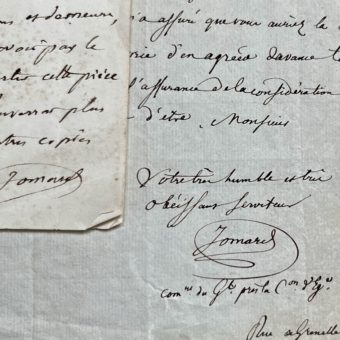 us et demeure,
pas le
cette pièce
plus
tres copies
Jomard
a assuré que vous auriez la
d'en agréer d'avance
l'assurance de la considération
d'être, Monsieur
Votre très humble et très
Obéissant Serviteur
Jomard
com.re du G.t près la C.on d'Eg.te
Rue de Grenelle